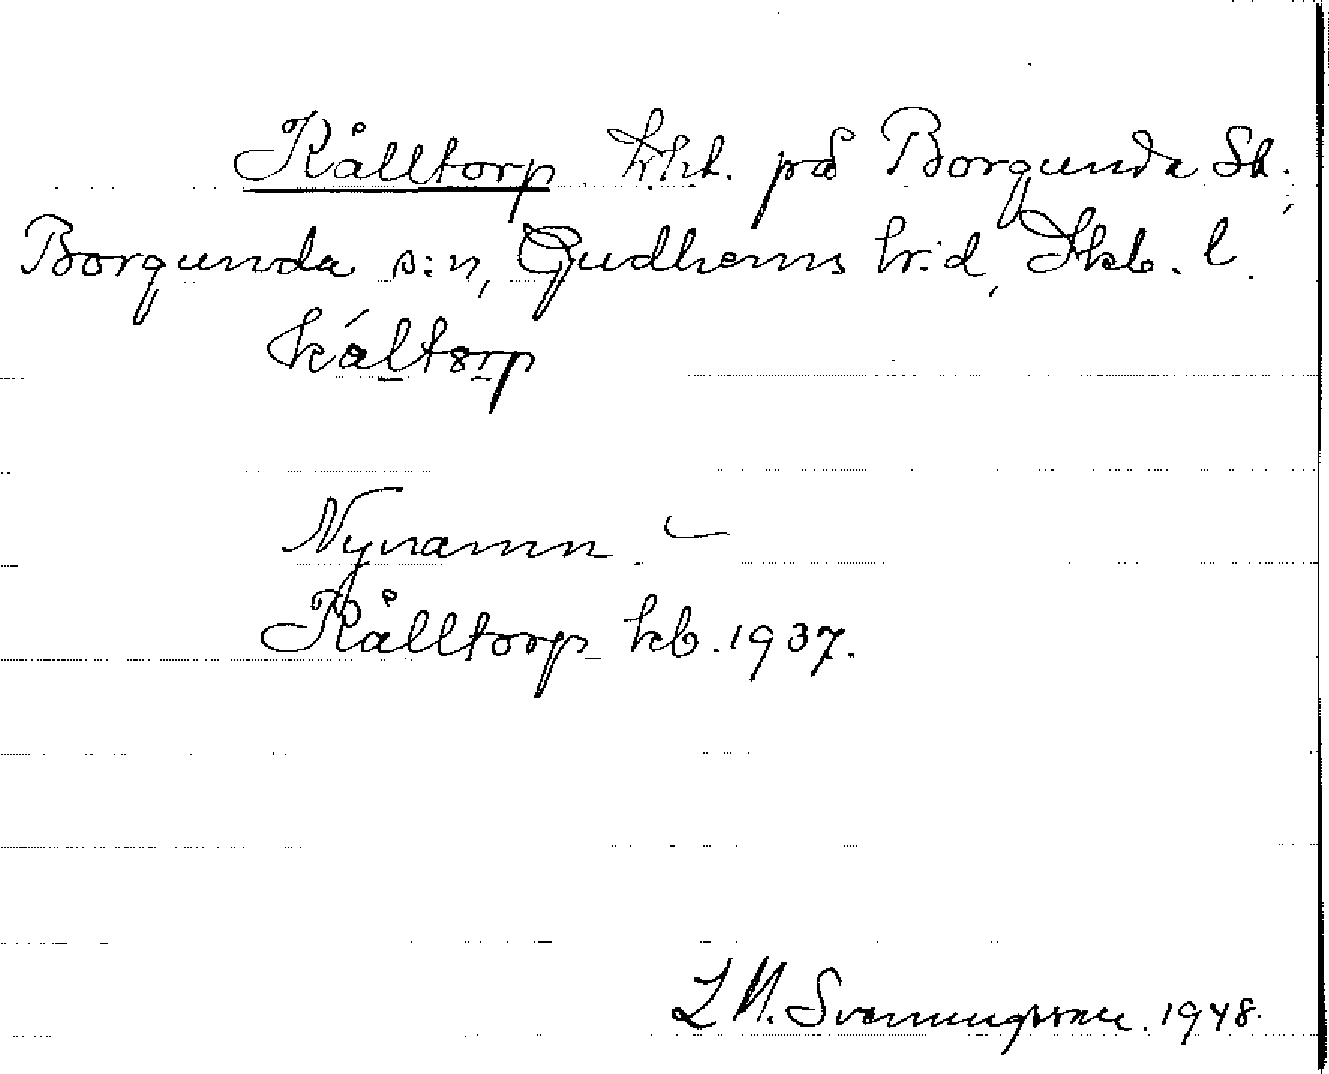 Kålltorp lht. på Borgunda St.,
Borgunda s:n, Gudhems hr:d, Skb. l.
kåltorp
Nynamn.
Kålltorp kb. 1937.
L M. Svenningsson. 1948.